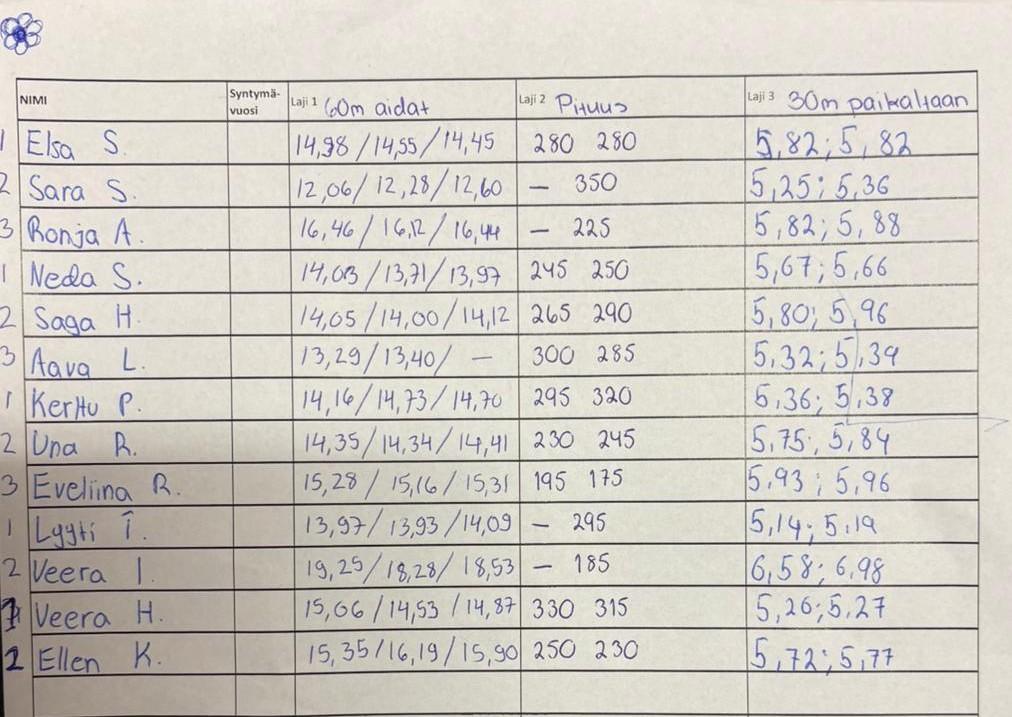 NIMI Syntymä-vuosi Laji 1 60m aidat Laji 2 Pituus Laji 3 30m paikaltaan
1 Elsa S. 14,98/14,55/14,45 280 280 5,82;5,82
2 Sara S. 12,06/12,28/12,60 – 350 5,25;5,36
3 Ronja A. 16,46/16,12/16,44 – 225 5,82;5,88
1 Neda S. 14,03/13,71/13,97 245 250 5,67;5,66
2 Saga H. 14,05/14,00/14,12 265 290 5,80;5,96
3 Aava L. 13,29/13,40/ – 300 285 5,32;5,39
1 Kerttu P. 14,16/14,73/14,70 295 320 5,36;5,38
2 Una R. 14,35/14,34/14,41 230 245 5,75,5,84
3 Eveliina R. 15,28/15,16/15,31 195 175 5,93;5,96
1 Lyyti T. 13,97/13,93/14,09 – 295 5,14;5,19
2 Veera I. 19,25/18,28/18,53 – 185 6,58;6,98
1 Veera H. 15,06/14,53/14,87 330 315 5,26;5,27
2 Ellen K. 15,35/16,19/15,90 250 230 5,72;5,77